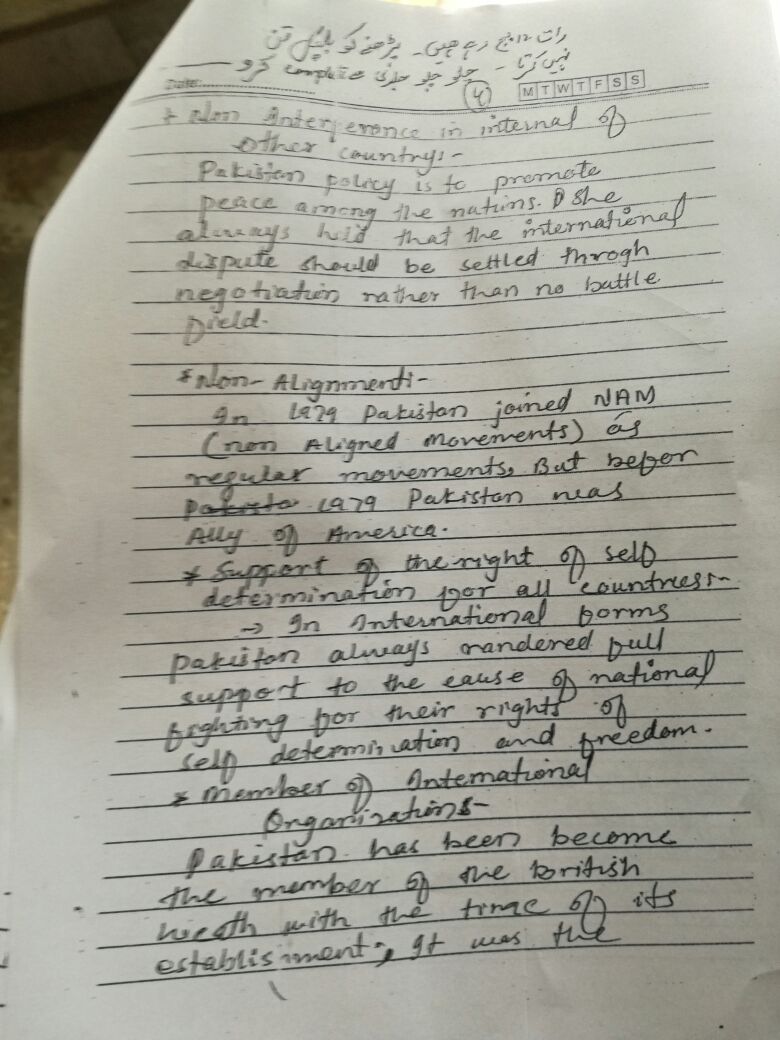 رات 12 بج رہے ہیں۔ پڑھنے کو بلکل من
نہیں کرتا۔ چلو چلو جلدی complete کرو
Date:
(4)
M T W T F S S
* Non Interference in internal of
other countrys:-
Pakistan policy is to promote
peace among the nations. She
always held that the international
dispute should be settled throgh
negotiation rather than no battle
field.
* Non-Alignment:-
In 1979 Pakistan joined NAM
(non Aligned movements) as
regular movements, But befor
Pakista 1979 Pakistan was
Ally of America.
* Support of the right of self
determination for all countress:-
→ In International forms
Pakistan always randered full
support to the cause of national
fighting for their rights of
self determination and freedom.
* Member of International
Organizations-
Pakistan has been become
the member of the british
weath with the time of its
establisment, It was the